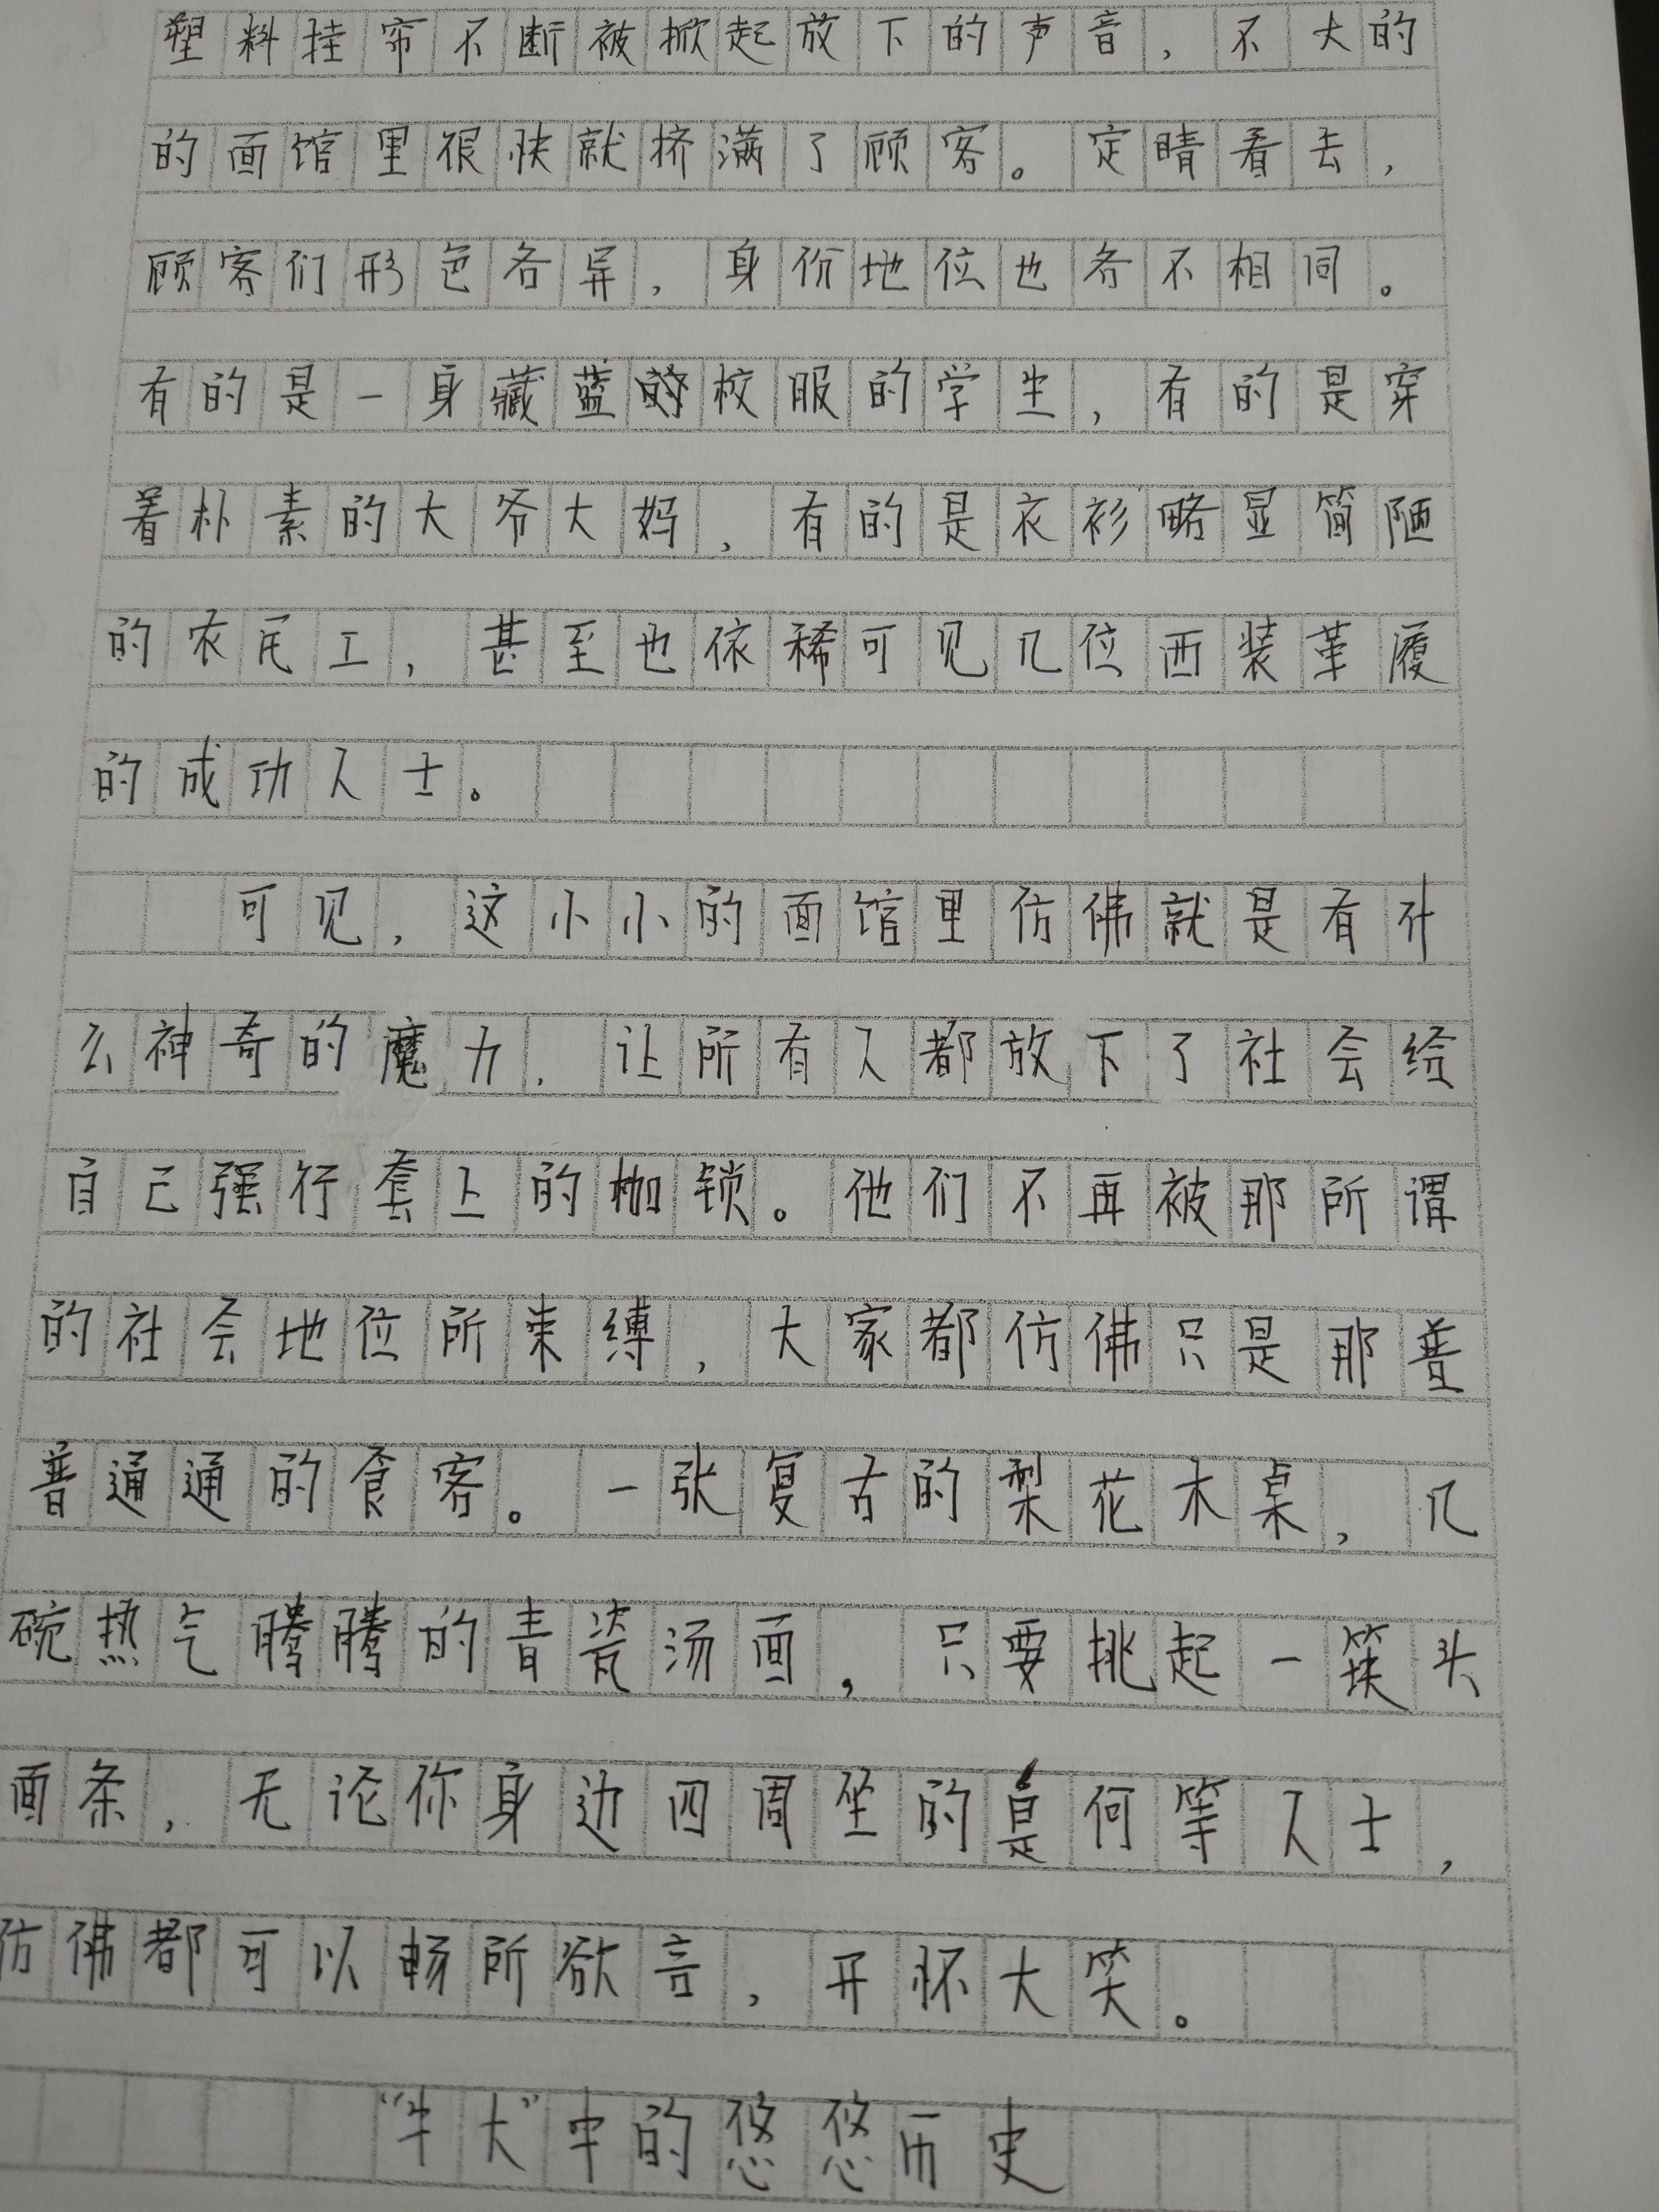 塑料挂帘不断被掀起放下的声音,不大的
的面馆里很快就挤满了顾客。定睛看去,
顾客们形色各异,身份地位也各不相同。
有的是一身藏蓝的校服的学生,有的是穿
着朴素的大爷大妈,有的是衣衫略显简陋
的农民工,甚至也依稀可见几位西装革履
的成功人士。
可见,这小小的面馆里仿佛就是有什
么神奇的魔力,让所有人都放下了社会给
自己强行套上的枷锁。他们不再被那所谓
的社会地位所束缚,大家都仿佛只是那普
普通通的食客。一张复古的梨花木桌,几
碗热气腾腾的青瓷汤面,只要挑起一筷头
面条,无论你身边四周坐的是何等人士,
仿佛都可以畅所欲言,开怀大笑。
“牛大”中的悠悠历史